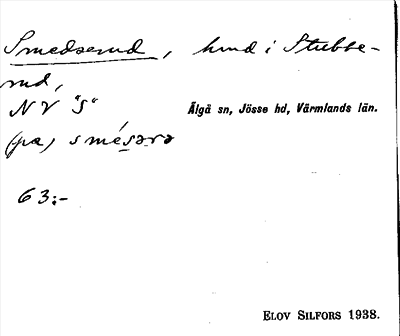 Smedserud, hmd i Stubbe-
rud,
NV "S"
Älgå sn, Jösse hd, Värmlands län.
(pa) smésərə
63:-
ELOV SILFORS 1938.